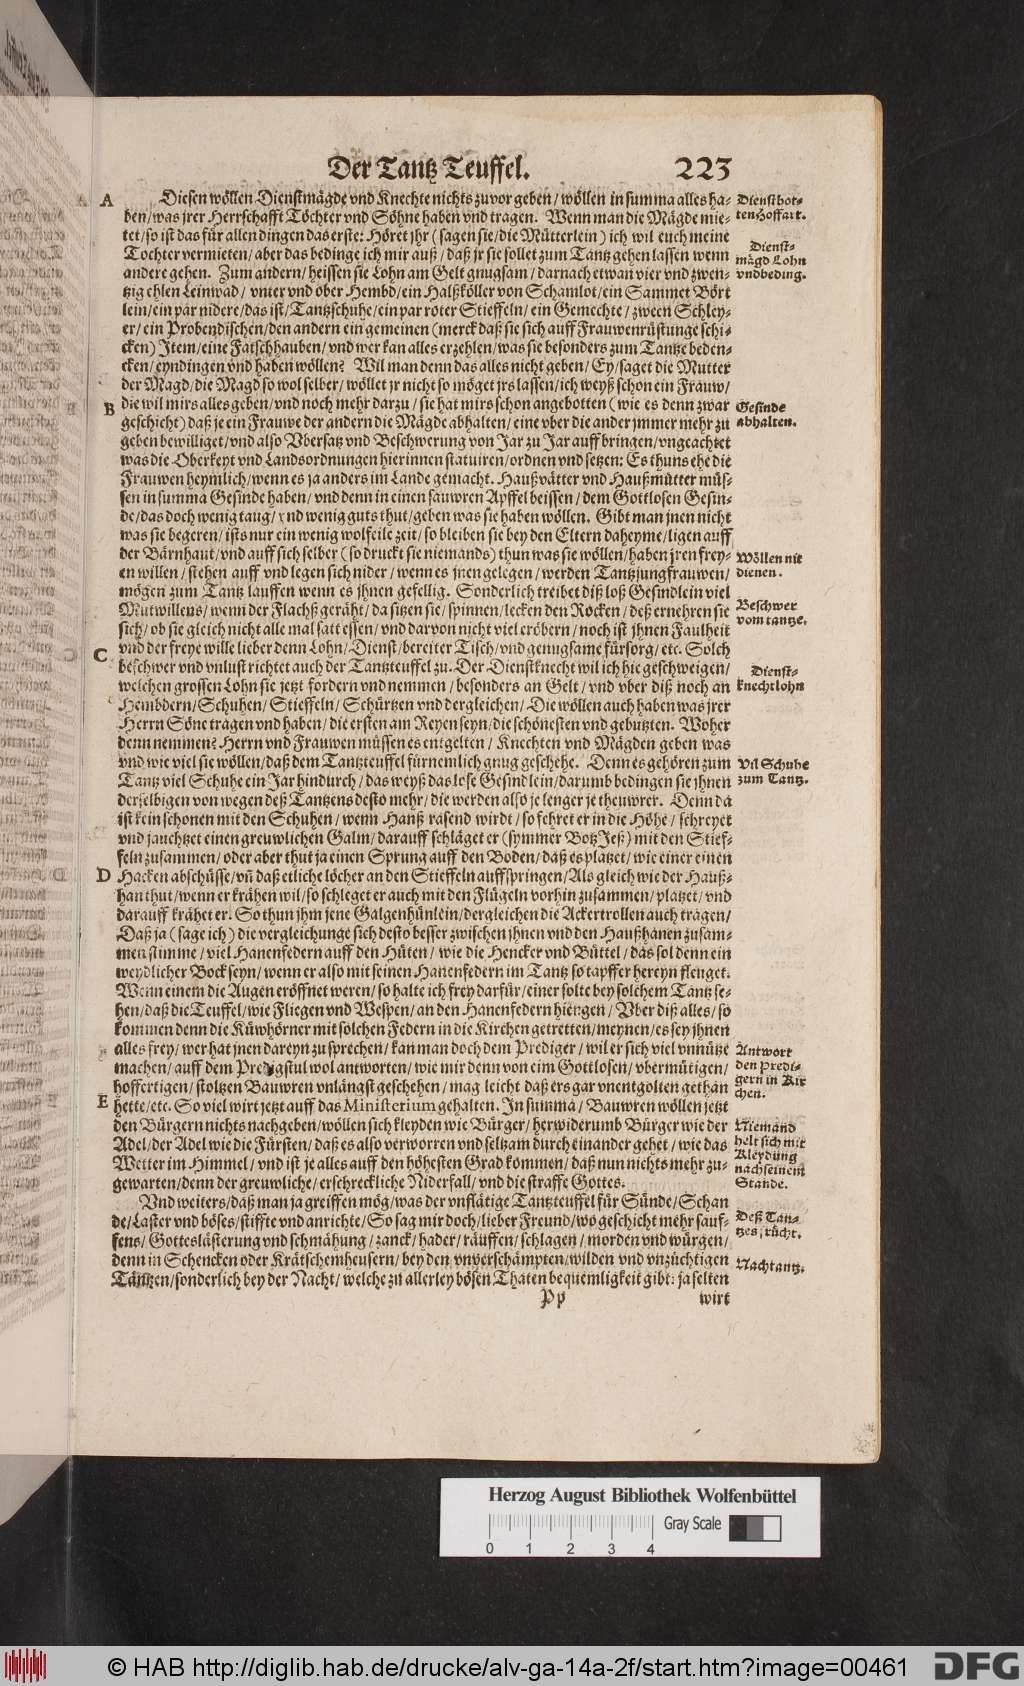 Der Tantz Teuffel. 223
A Diesen wöllen Dienstmägde vnd Knechte nichts zuvor geben/ wöllen in summa alles ha-
ben/ was jrer Herrschafft Töchter vnd Söhne haben vnd tragen. Wenn man die Mägde mie-
tet/ so ist das für allen dingen das erste: Höret jhr (sagen sie/ die Mütterlein) ich wil euch meine
Tochter vermieten/ aber das bedinge ich mir auß/ daß jr sie sollet zum Tantz gehen lassen wenn
andere gehen. Zum andern/ heissen sie Lohn am Gelt gnugsam/ darnach etwan vier vnd zwen-
tzig ehlen Leinwad/ vnter vnd ober Hembd/ ein Halßköller von Schamlot/ ein Sammet Bört
lein/ ein par nidere/ das ist/ Tantzschuhe/ ein par roter Stieffeln/ ein Gemechte/ zween Schley-
er/ ein Probendischen/ den andern ein gemeinen (merck daß sie sich auff Frauwenrüstunge schi-
cken) Item/ eine Fatschhauben/ vnd wer kan alles erzehlen/ was sie besonders zum Tantze beden-
cken/ eyndingen vnd haben wöllen? Wil man denn das alles nicht geben/ Ey/ saget die Mutter
der Magd/ die Magd so wol selber/ wöllet jr nicht so möget jrs lassen/ ich weyß schon ein Frauw/
B die wil mirs alles geben/ vnd noch mehr darzu/ sie hat mirs schon angebotten (wie es denn zwar
geschicht) daß je ein Frauwe der andern die Mägde abhalten/ eine vber die ander jmmer mehr zu
geben bewilliget/ vnd also Vbersatz vnd Beschwerung von Jar zu Jar auff bringen/ vngeachtet
was die Oberkeyt vnd Landsordnungen hierinnen statuiren/ ordnen vnd setzen: Es thuns ehe die
Frauwen heymlich/ wenn es ja anders im Lande gemacht. Haußvätter vnd Haußmütter müs-
sen in summa Gesinde haben/ vnd denn in einen sauwren Apffel beissen/ dem Gottlosen Gesin-
de/ das doch wenig taug/ vnd wenig guts thut/ geben was sie haben wöllen. Gibt man jnen nicht
was sie begeren/ ists nur ein wenig wolfeile zeit/ so bleiben sie bey den Eltern daheyme/ ligen auff
der Bärnhaut/ vnd auff sich selber (so druckt sie niemands) thun was sie wöllen/ haben jren frey-
en willen/ stehen auff vnd legen sich nider/ wenn es jnen gelegen/ werden Tantzjungfrauwen/
mögen zum Tantz lauffen wenn es jhnen gefellig. Sonderlich treibet diß loß Gesindlein viel
Mutwillens/ wenn der Flachß geräht/ da sitzen sie/ spinnen/ lecken den Rocken/ deß ernehren sie
sich/ ob sie gleich nicht alle mal satt essen/ vnd darvon nicht viel eröbern/ noch ist jhnen Faulheit
C vnd der freye wille lieber denn Lohn/ Dienst/ bereiter Tisch/ vnd genugsame fürsorg/ etc. Solch
beschwer vnd vnlust richtet auch der Tantzteuffel zu. Der Dienstknecht wil ich hie geschweigen/
welchen grossen Lohn sie jetzt fordern vnd nemmen/ besonders an Gelt/ vnd vber diß noch an
Hembdern/ Schuhen/ Stieffeln/ Schürtzen vnd dergleichen/ Die wöllen auch haben was jrer
Herrn Söne tragen vnd haben/ die ersten am Reyen seyn/ die schönesten vnd gebutzten. Woher
denn nemmen? Herrn vnd Frauwen müssen es entgelten/ Knechten vnd Mägden geben was
vnd wie viel sie wöllen/ daß dem Tantzteuffel fürnemlich gnug geschehe. Denn es gehören zum
Tantz viel Schuhe ein Jar hindurch/ das weyß das lose Gesindlein/ darumb bedingen sie jhnen
derselbigen von wegen deß Tantzens desto mehr/ die werden also je lenger je theuwrer. Denn da
ist kein schonen mit den Schuhen/ wenn Hanß rasend wirdt/ so fehret er in die Höhe/ schreyet
vnd jauchtzet einen greuwlichen Galm/ darauff schläget er (symmer Botz Jeß) mit den Stief-
feln zusammen/ oder aber thut ja einen Sprung auff den Boden/ daß es platzet/ wie einer einen
D Hacken abschüsse/ vñ daß etliche löcher an den Stieffeln auffspringen/ Als gleich wie der Hauß-
han thut/ wenn er krähen wil/ so schleget er auch mit den Flügeln vorhin zusammen/ platzet/ vnd
darauff krähet er. So thun jhm jene Galgenhünlein/ dergleichen die Ackertrollen auch tragen/
Daß ja (sage ich) die vergleichunge sich desto besser zwischen jhnen vnd den Haußhanen zusam-
men stimme/ viel Hanenfedern auff den Hüten/ wie die Hencker vnd Büttel/ das sol denn ein
weydlicher Bock seyn/ wenn er also mit seinen Hanenfedern im Tantz so tapffer hereyn flenget.
Wenn einem die Augen eröffnet weren/ so halte ich frey darfür/ einer solte bey solchem Tantz se-
hen/ daß die Teuffel/ wie Fliegen vnd Wespen/ an den Hanenfedern hiengen/ Vber diß alles/ so
kommen denn die Küwhörner mit solchen Federn in die Kirchen getretten/ meynen/ es sey jhnen
alles frey/ wer hat jnen dareyn zu sprechen/ kan man doch dem Prediger/ wil er sich viel vnnütze
machen/ auff dem Predigstul wol antworten/ wie mir denn von eim Gottlosen/ vbermütigen/
hoffertigen/ stoltzen Bauwren vnlängst geschehen/ mag leicht daß ers gar vnentgolten gethan
E hette/ etc. So viel wirt jetzt auff das Ministerium gehalten. In summa/ Bauwren wöllen jetzt
den Bürgern nichts nachgeben/ wöllen sich kleyden wie Bürger/ herwiderumb Bürger wie der
Adel/ der Adel wie die Fürsten/ daß es also verworren vnd seltzam durch einander gehet/ wie das
Wetter im Himmel/ vnd ist je alles auff den höhesten Grad kommen/ daß nun nichts mehr zu-
gewarten/ denn der greuwliche/ erschreckliche Niderfall/ vnd die straffe Gottes.
Vnd weiters/ daß man ja greiffen mög/ was der vnflätige Tantzteuffel für Sünde/ Schan
de/ Laster vnd böses/ stiffte vnd anrichte/ So sag mir doch/ lieber Freund/ wo geschicht mehr sauf-
fens/ Gotteslästerung vnd schmähung/ zanck/ hader/ räuffen/ schlagen/ morden vnd würgen/
denn in Schencken oder Krätschemheusern/ bey den vnverschämpten/ wilden vnd vnzüchtigen
Täntzen/ sonderlich bey der Nacht/ welche zu allerley bösen Thaten bequemligkeit gibt: ja selten
Pp wirt
Dienstbot-
ten Hoffart.
Dienst-
mägd Lohn
vnd beding.
Gesinde
abhalten.
Wöllen nit
dienen.
Beschwer
vom tantze.
Dienst-
knecht lohn
Vil Schuhe
zum Tantz.
Antwort
den Predi-
gern in Kir
chen.
Niemand
helt sich mit
Kleydung
nach seinem
Stande.
Deß Tan-
tzes frücht.
Nachtantz.
Herzog August Bibliothek Wolfenbüttel
Gray Scale
0 1 2 3 4
© HAB http://diglib.hab.de/drucke/alv-ga-14a-2f/start.htm?image=00461
DFG